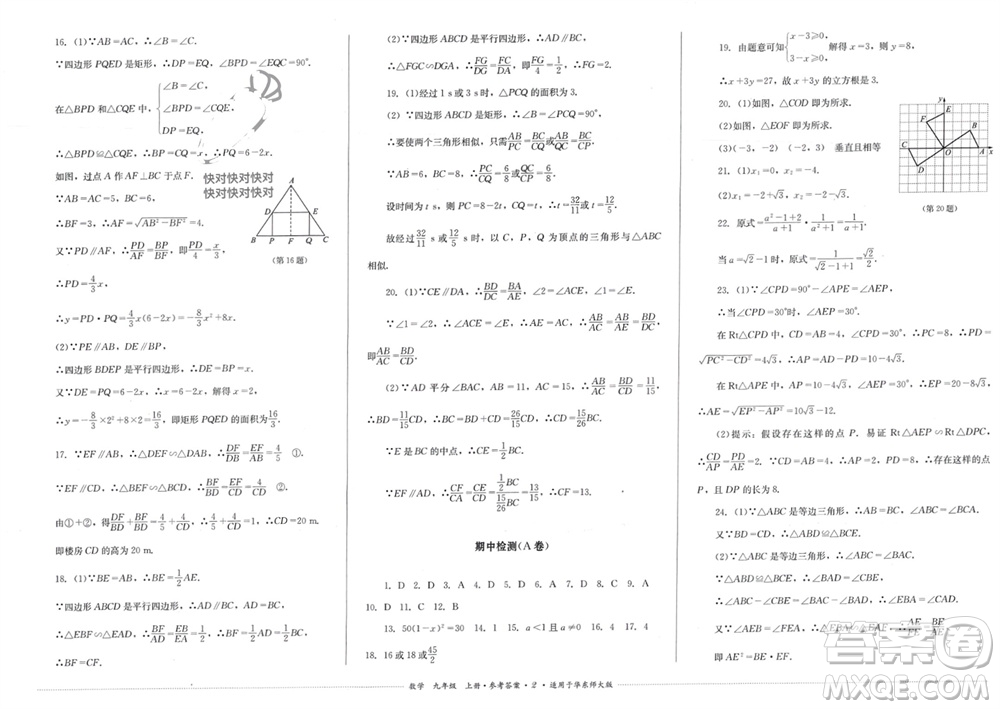 16. (1)∵AB=AC，∴∠B=∠C.
∵四边形 PQED 是矩形，∴DP=EQ，∠BPD=∠EQC=90°.
在△BPD 和△CQE 中，{∠B=∠C，
∠BPD=∠CQE，
DP=EQ，
∴△BPD≌△CQE，∴BP=CQ=x，∴PQ=6-2x.
快对快对快对
快对快对快对
如图，过点 A 作 AF⊥BC 于点 F.
∵AB=AC=5，BC=6，
∴BF=3，∴AF=√(AB²-BF²)=4.
又∵PD∥AF，∴PD/AF=BP/BF，即PD/4=x/3，
∴PD=4/3x，
A
D E
B P F Q C
(第 16 题)
∴y=PD·PQ=4/3x(6-2x)=-8/3x²+8x.
(2)∵PE∥AB，PB∥DE，
∴四边形 BDEP 是平行四边形，∴BP=DE.
又∵DE=PQ=6-2x，∴x=6-2x，解得 x=2，
∴y=-8/3×2²+8×2=16/3，即矩形 PQED 的面积为16/3.
17. ∵EF∥AB，∴△DEF∽△DAB，∴DF/DB=EF/AB=4/5 ①.
∵EF∥CD，∴△BEF∽△BCD，∴BF/BD=EF/CD=4/CD ②.
由①+②，得DF/BD+BF/BD=4/5+4/CD，∴1=4/5+4/CD，∴CD=20 m.
即楼房 CD 的高为 20 m.
18. (1)∵BE=AB，∴BE=1/2AE.
∵四边形 ABCD 是平行四边形，∴AD∥BC，
∴△EBF∽△EAD，∴BF/AD=EB/EA=1/2，∴BF=1/2AD=1/2BC，
∴BF=CF.
(2)∵四边形 ABCD 是平行四边形，∴AD∥BC，
∴△FGC∽DGA，∴FG/DG=FC/AD，即FG/4=1/2，∴FG=2.
19. (1)经过 1 s 或 3 s 时，△PCQ 的面积为 3.
(2) ∵四边形 ABCD 是矩形，∴∠B=∠PCQ=90°，
∴要使两个三角形相似，只需AB/PC=BC/CQ或AB/CQ=BC/PC.
∵AB=6，BC=8，∴PC/CQ=6/8或QC/CP=6/8.
设时间为 t s，则 PC=8-2t，CQ=t，∴t=32/11或 t=12/5.
故经过32/11 s 或12/5 s 时，以 C，P，Q 为顶点的三角形与△ABC
相似.
20. (1)∵CE∥DA，∴BD/DC=BA/AE，∠2=∠ACE，∠1=∠E.
∵∠1=∠2，∴∠ACE=∠E，∴AE=AC，∴AB/AC=AB/AE=BD/DC，
即AB/AC=BD/CD.
(2)∵AD 平分∠BAC，AB=11，AC=15，∴AB/AC=BD/CD=11/15，
∴BD=11/15CD，∴BC=BD+CD=26/15CD，∴1/2BC=1/2×26/15CD=
13/15CD.
∵E 是 BC 的中点，∴CE=1/2BC=13/15CD.
∵EF∥AD，∴CF/CA=CE/CD，∴CF=13.
期中检测(A 卷)
1. D 2. D 3. A 4. D 5. C 6. B 7. D 8. D 9. A
10. D 11. C 12. B
13. 50(1-x)²=30 14. 1 15. a<1 且 a≠0 16. 4 17. 4
18. 16 或 18 或45/2
19. 由题意可知{x-3≥0，
3-x≥0， 解得 x=3，则 y=8，
∴x+3y=27，故 x+3y 的立方根是 3.
20. (1)如图，△COD 即为所求.
(2)如图，△EOF 即为所求.
(3)(-3，-2) (-2，3) 垂直且相等
21. (1)x₁=1，x₂=-4.
(2)x₁=-2+√3，x₂=-2-√3.
y
E
F B
C O A x
D
(第 20 题)
22. 原式=(a²-1+2)/(a+1)·1/(a²+1)=1/(a+1).
当 a=√2-1 时，原式=1/(√2-1+1)=√2/2.
23. (1)∵∠CPD=90°-∠APE=∠AEP，
∴当∠CPD=30°时，∠AEP=30°.
在 Rt△CPD 中，CD=AB=4，∠CPD=30°，∴PC=8，∴PD=
√(PC²-CD²)=4√3，∴AP=AD-PD=10-4√3.
在 Rt△APE 中，∠AEP=30°，∴EP=20-8√3，
∴AE=√(EP²-AP²)=10√3-12.
(2)提示：假设存在这样的点 P. 易证 Rt△AEP∽Rt△DPC，
∴CD/AP=PD/AE=2. ∵CD=4，∴AP=2，PD=8，∴存在这样的点
P，且 DP 的长为 8.
24. (1)∵△ABC 是等边三角形，∴AB=BC，∠ABC=∠C.
又∵BD=CD，∴△ABD≌△BCE.
(2)∵△ABC 是等边三角形，∴∠ABC=∠BAC.
∵△ABD≌△BCE，∴∠BAD=∠CBE，
∴∠ABE=∠EAF.
又∵∠AEF=∠BEA，∴△EAF∽△EBA，∴
即 AE²=BE·EF.
答案圈
数学 九年级 上册·参考答案·2·适用于华东师大版